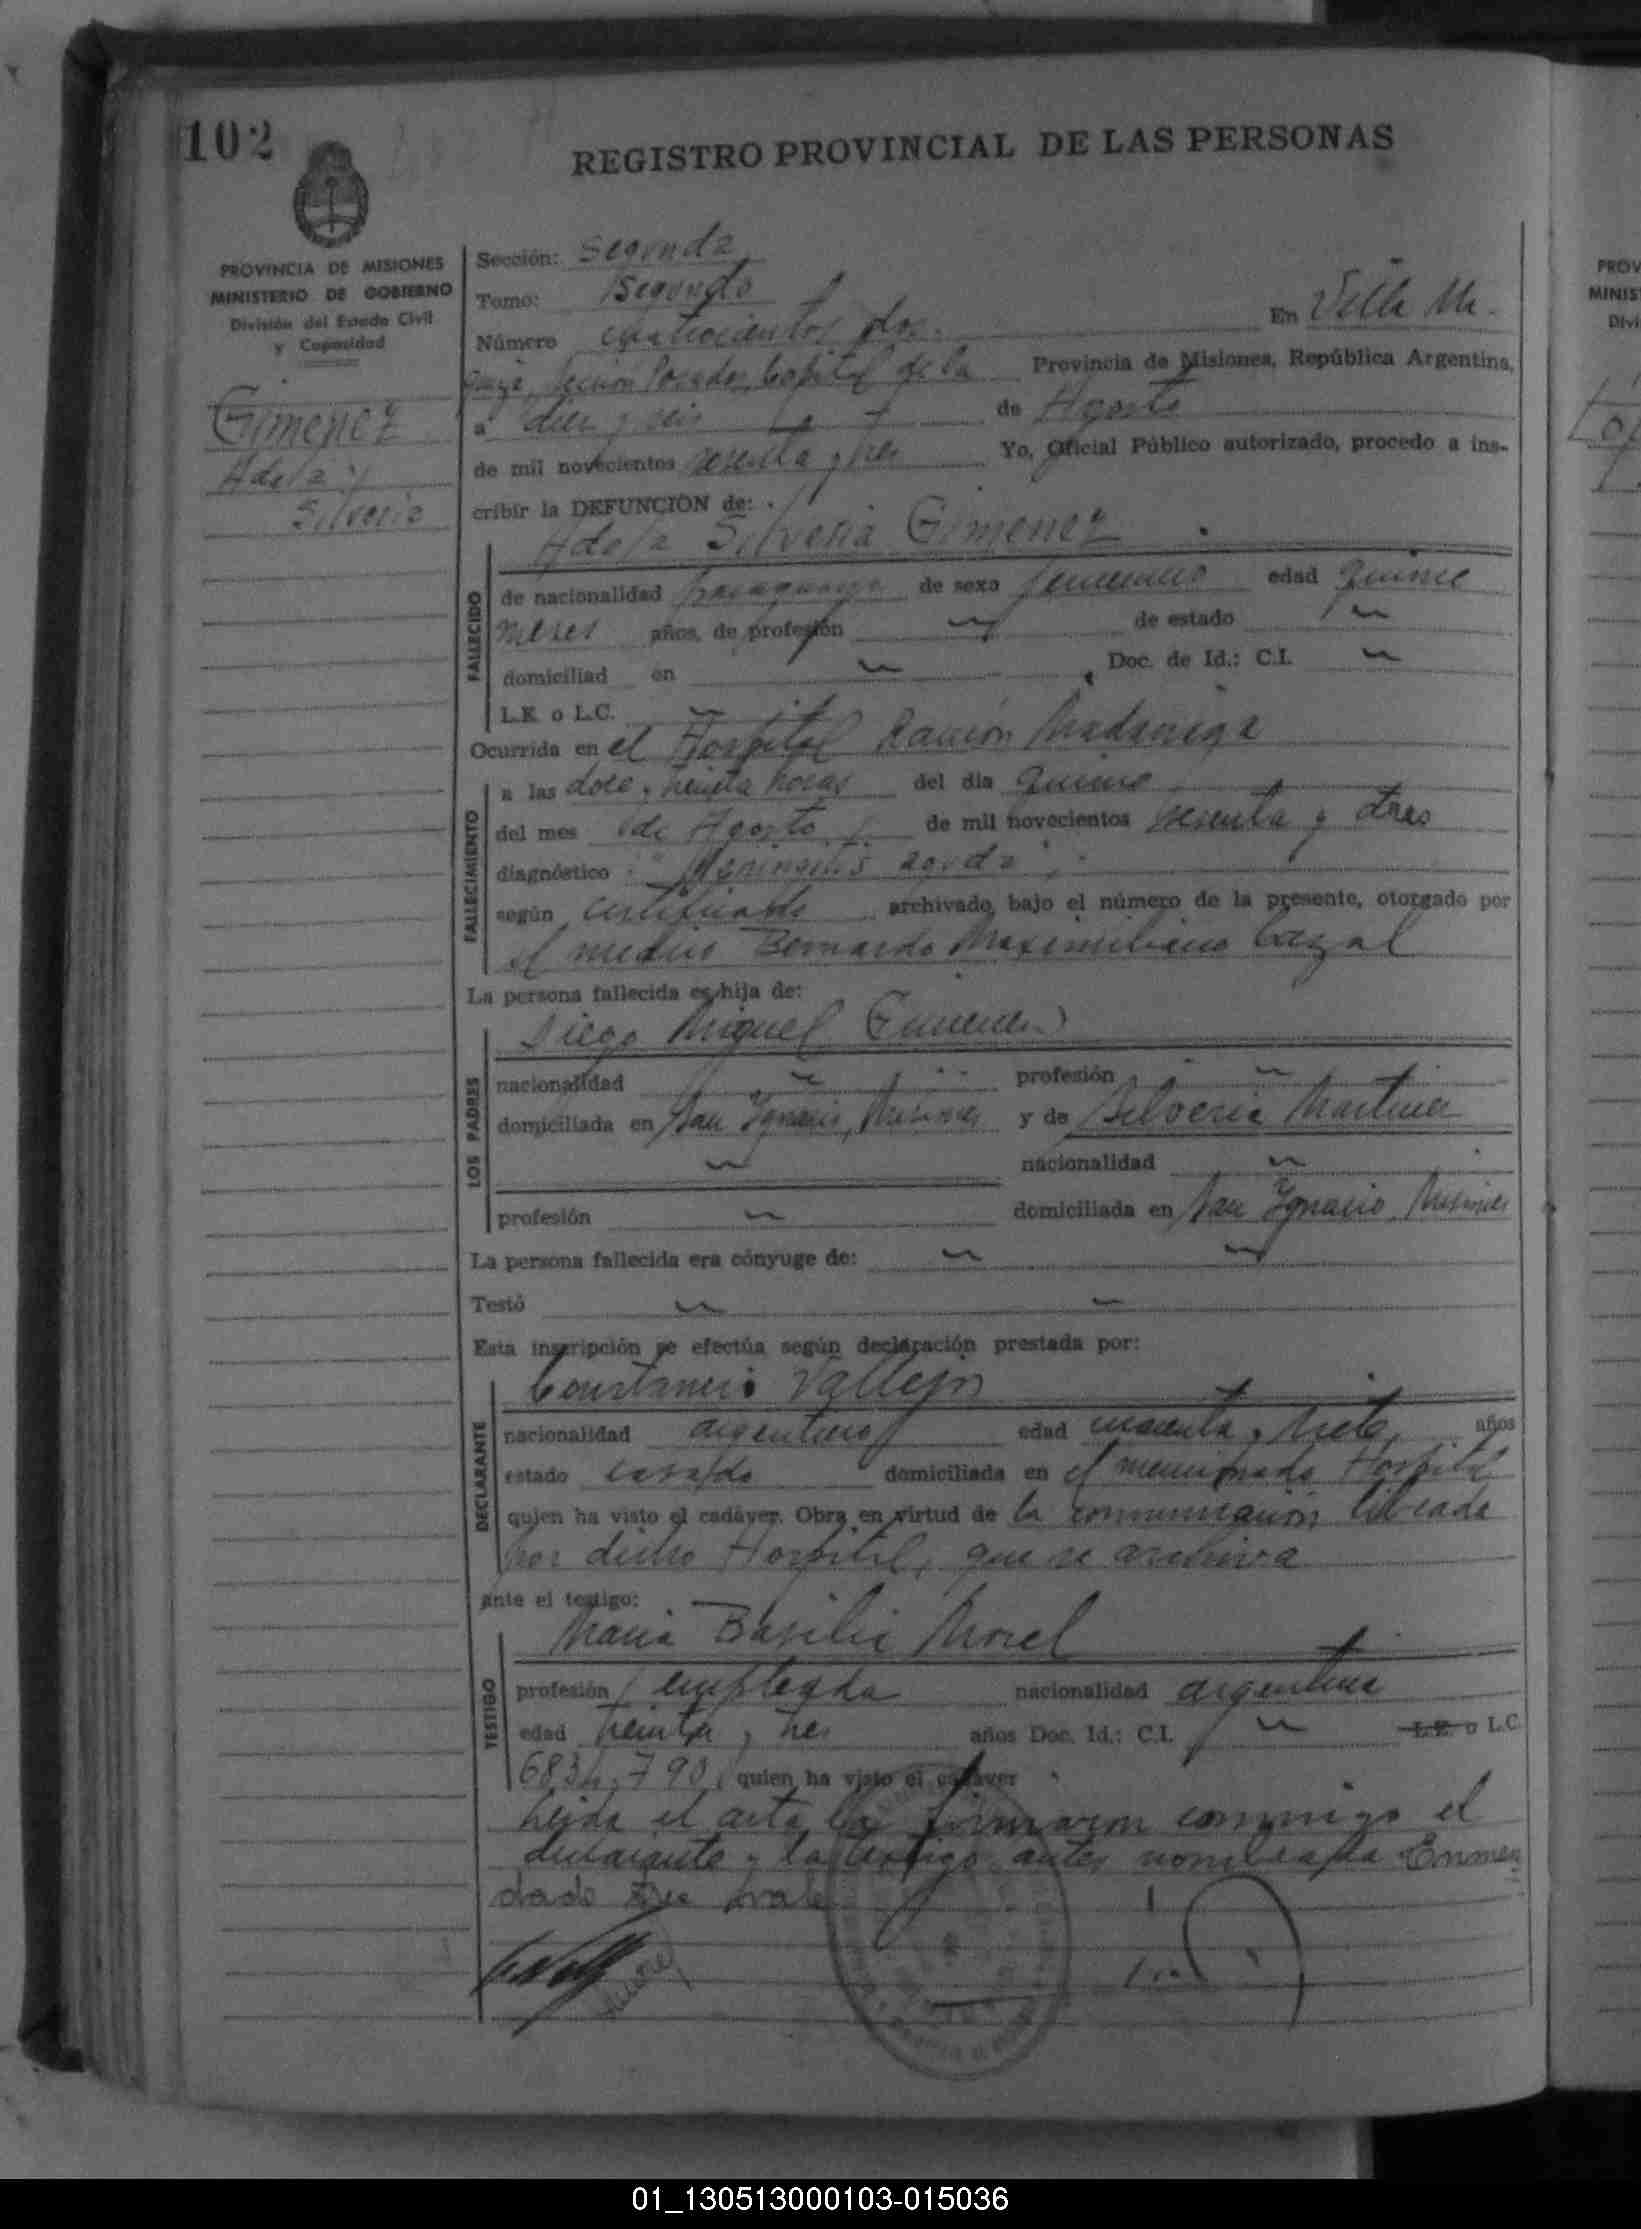 102
REGISTRO PROVINCIAL DE LAS PERSONAS
PROVINCIA DE MISIONES
MINISTERIO DE GOBIERNO
División del Estado Civil
y Capacidad
Gimenez
Adela
Silveria
Sección: Segunda
Tomo: Segundo
Número cuatrocientos dos. En Villa
Sección Posadas, Capital de la Provincia de Misiones, República Argentina,
a diez y seis de Agosto
de mil novecientos sesenta y tres Yo, Oficial Público autorizado, procedo a ins-
cribir la DEFUNCION de:
Adela Silveria Gimenez
FALLECIDO
de nacionalidad paraguaya de sexo femenino edad quince
meses años, de profesión de estado
domiciliad en Doc. de Id.: C.I.
L.E. o L.C.
Ocurrida en el Hospital Ramón Madariaga
FALLECIMIENTO
a las doce y treinta horas del día quince
del mes de Agosto de mil novecientos sesenta y tres
diagnóstico "Meningitis aguda";
según certificado archivado, bajo el número de la presente, otorgado por
el médico Bernardo Maximiliano Cazal
La persona fallecida es hija de:
LOS PADRES
Diego Miguel Gimenez
nacionalidad profesión
domiciliada en San Ygnacio, Misiones y de Silveria Martinez
nacionalidad
profesión domiciliada en San Ygnacio, Misiones
La persona fallecida era cónyuge de:
Testó
Esta inscripción se efectúa según declaración prestada por:
DECLARANTE
Constancio Vallejos
nacionalidad argentino edad cuarenta y siete años
estado casado domiciliada en el mencionado Hospital
quien ha visto el cadáver. Obra en virtud de la comunicación librada
por dicho Hospital, que se archiva
ante el testigo:
TESTIGO
Maria Basilia Morel
profesión empleada nacionalidad argentina
edad treinta y tres años Doc. Id.: C.I. L.E. o L.C.
6834.790, quien ha visto el cadáver
Leida el acta la firmaron conmigo el
declarante y la testigo antes nombrada Enmen
dado vale
PROV
MINIS
Divi
01_130513000103-015036